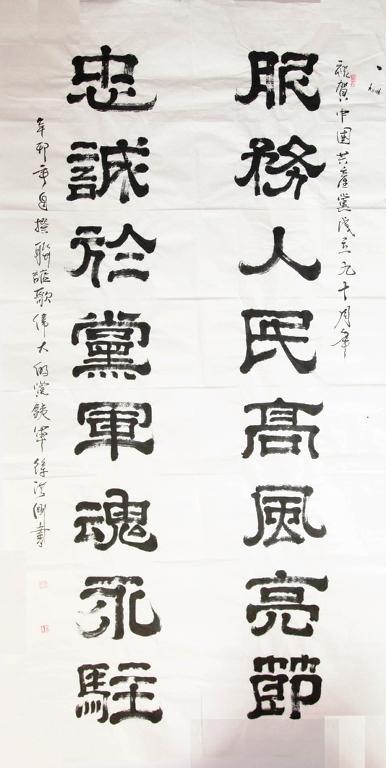 祝賀中国共產黨成立九十周年
服務人民高風亮節
忠誠於黨軍魂永駐
辛卯 撰聯謳歌偉大的党 軍徐洪剛書